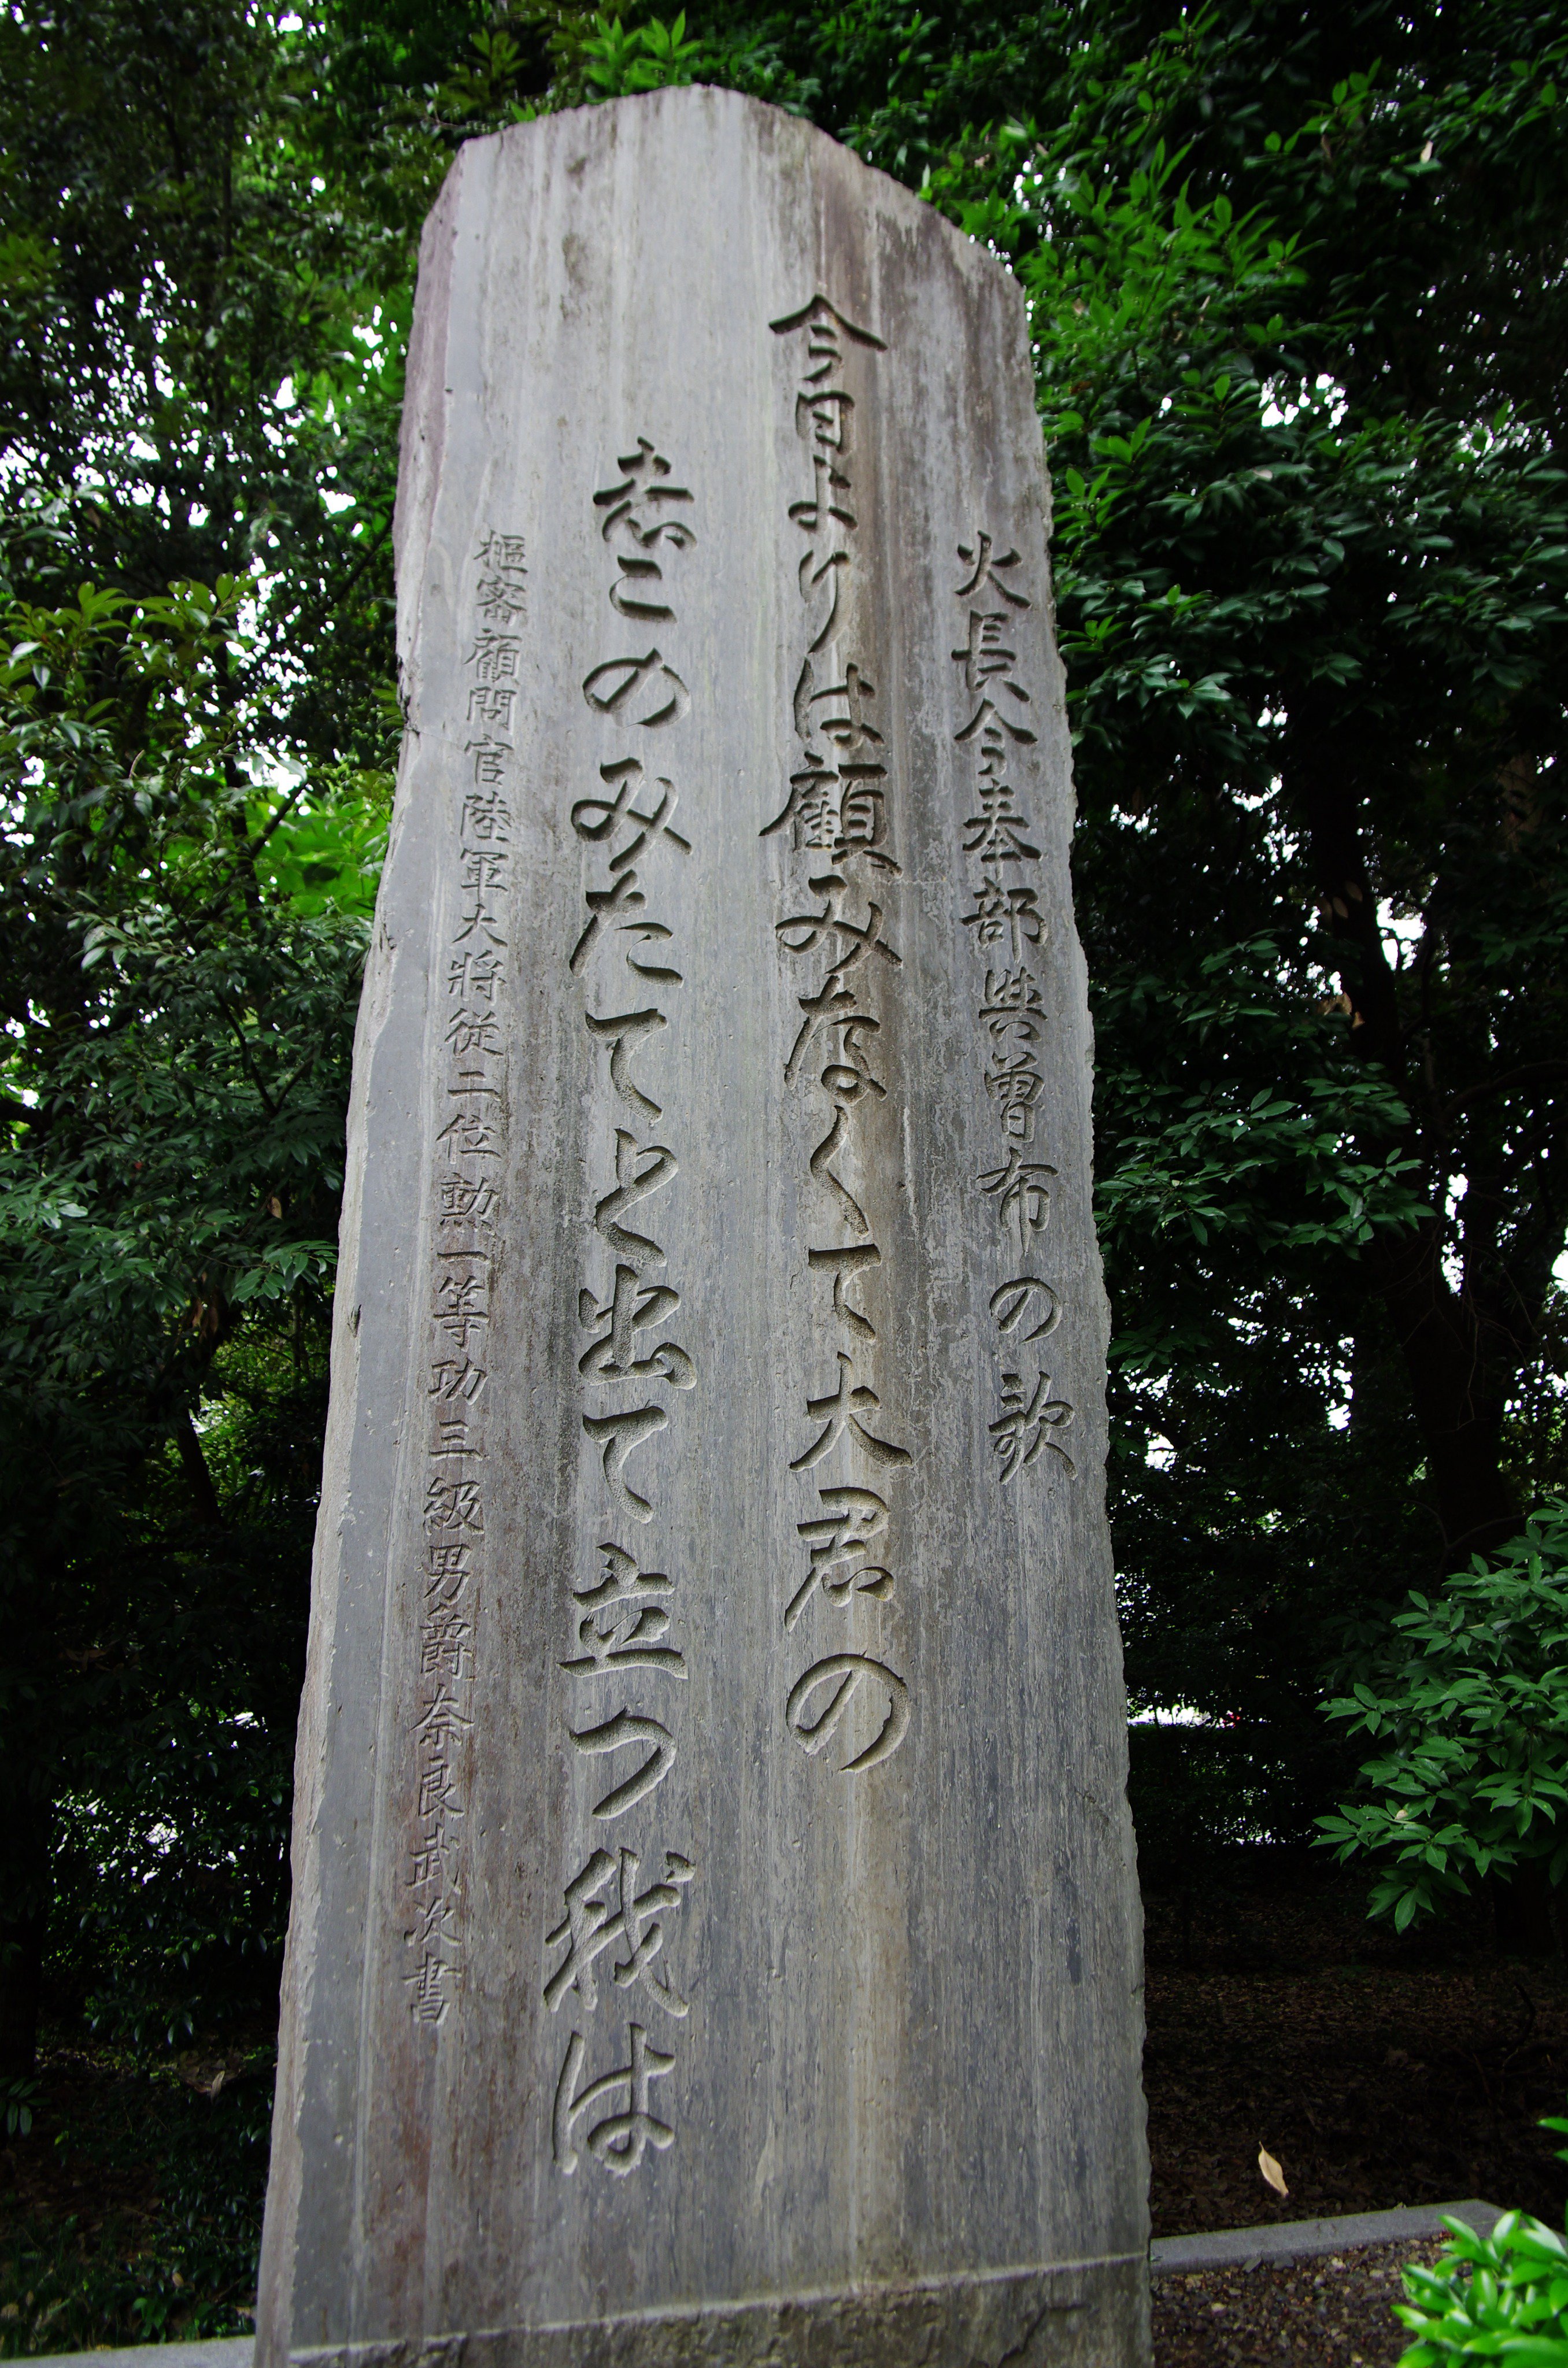 火長今奉部與曽布の歌
今日よりは顧みなくて大君の
志このみたてと出て立つ我は
樞密顧問官陸軍大将従二位勲一等功三級男爵奈良武次書